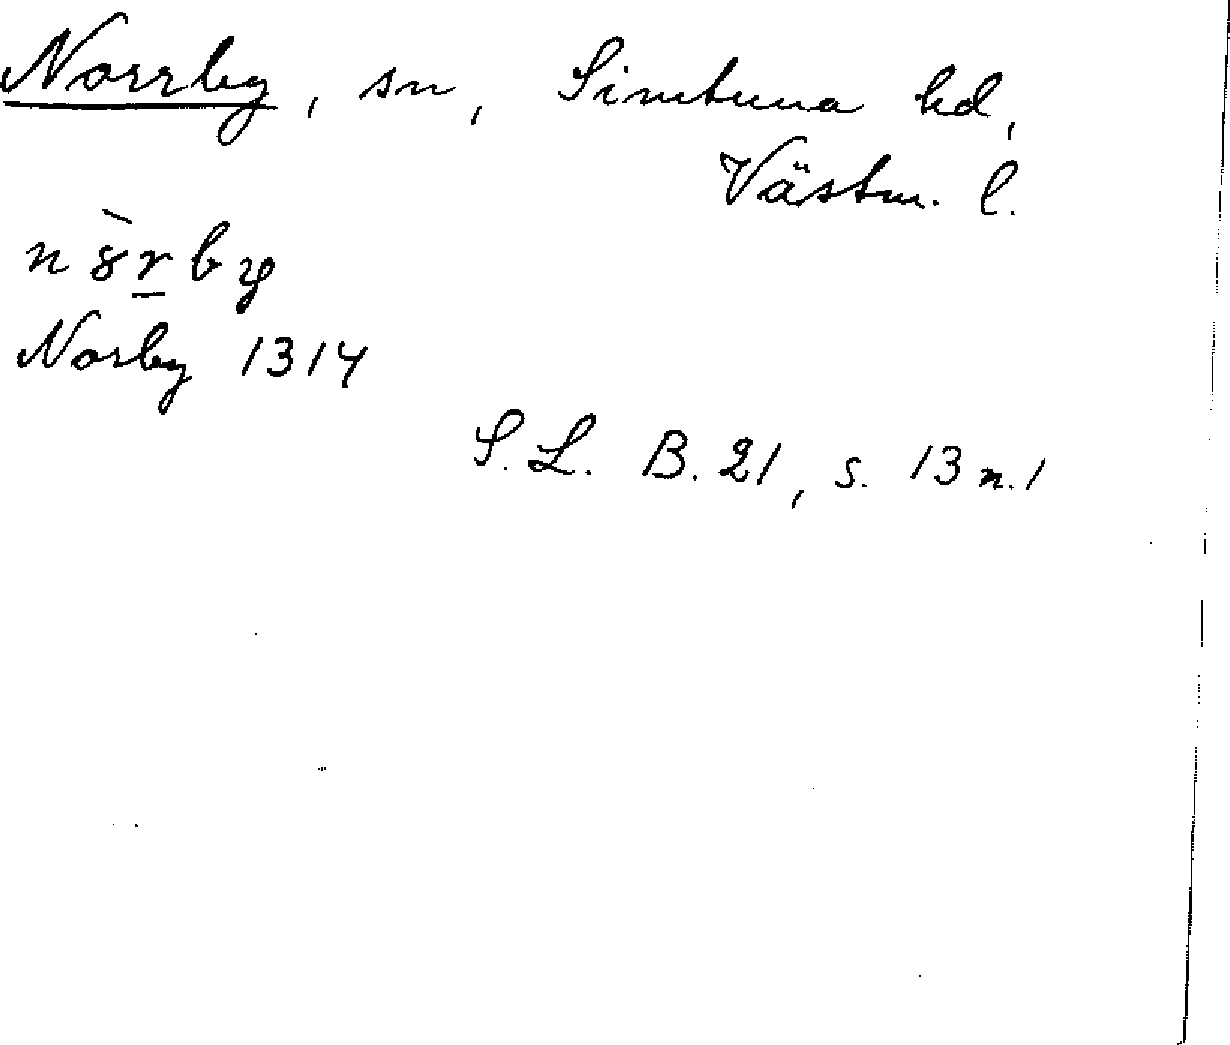 Norrby, sn, Simtuna hd,
Västm. l.
Norby 1314
S. L. B. 21, s. 13 n. 1